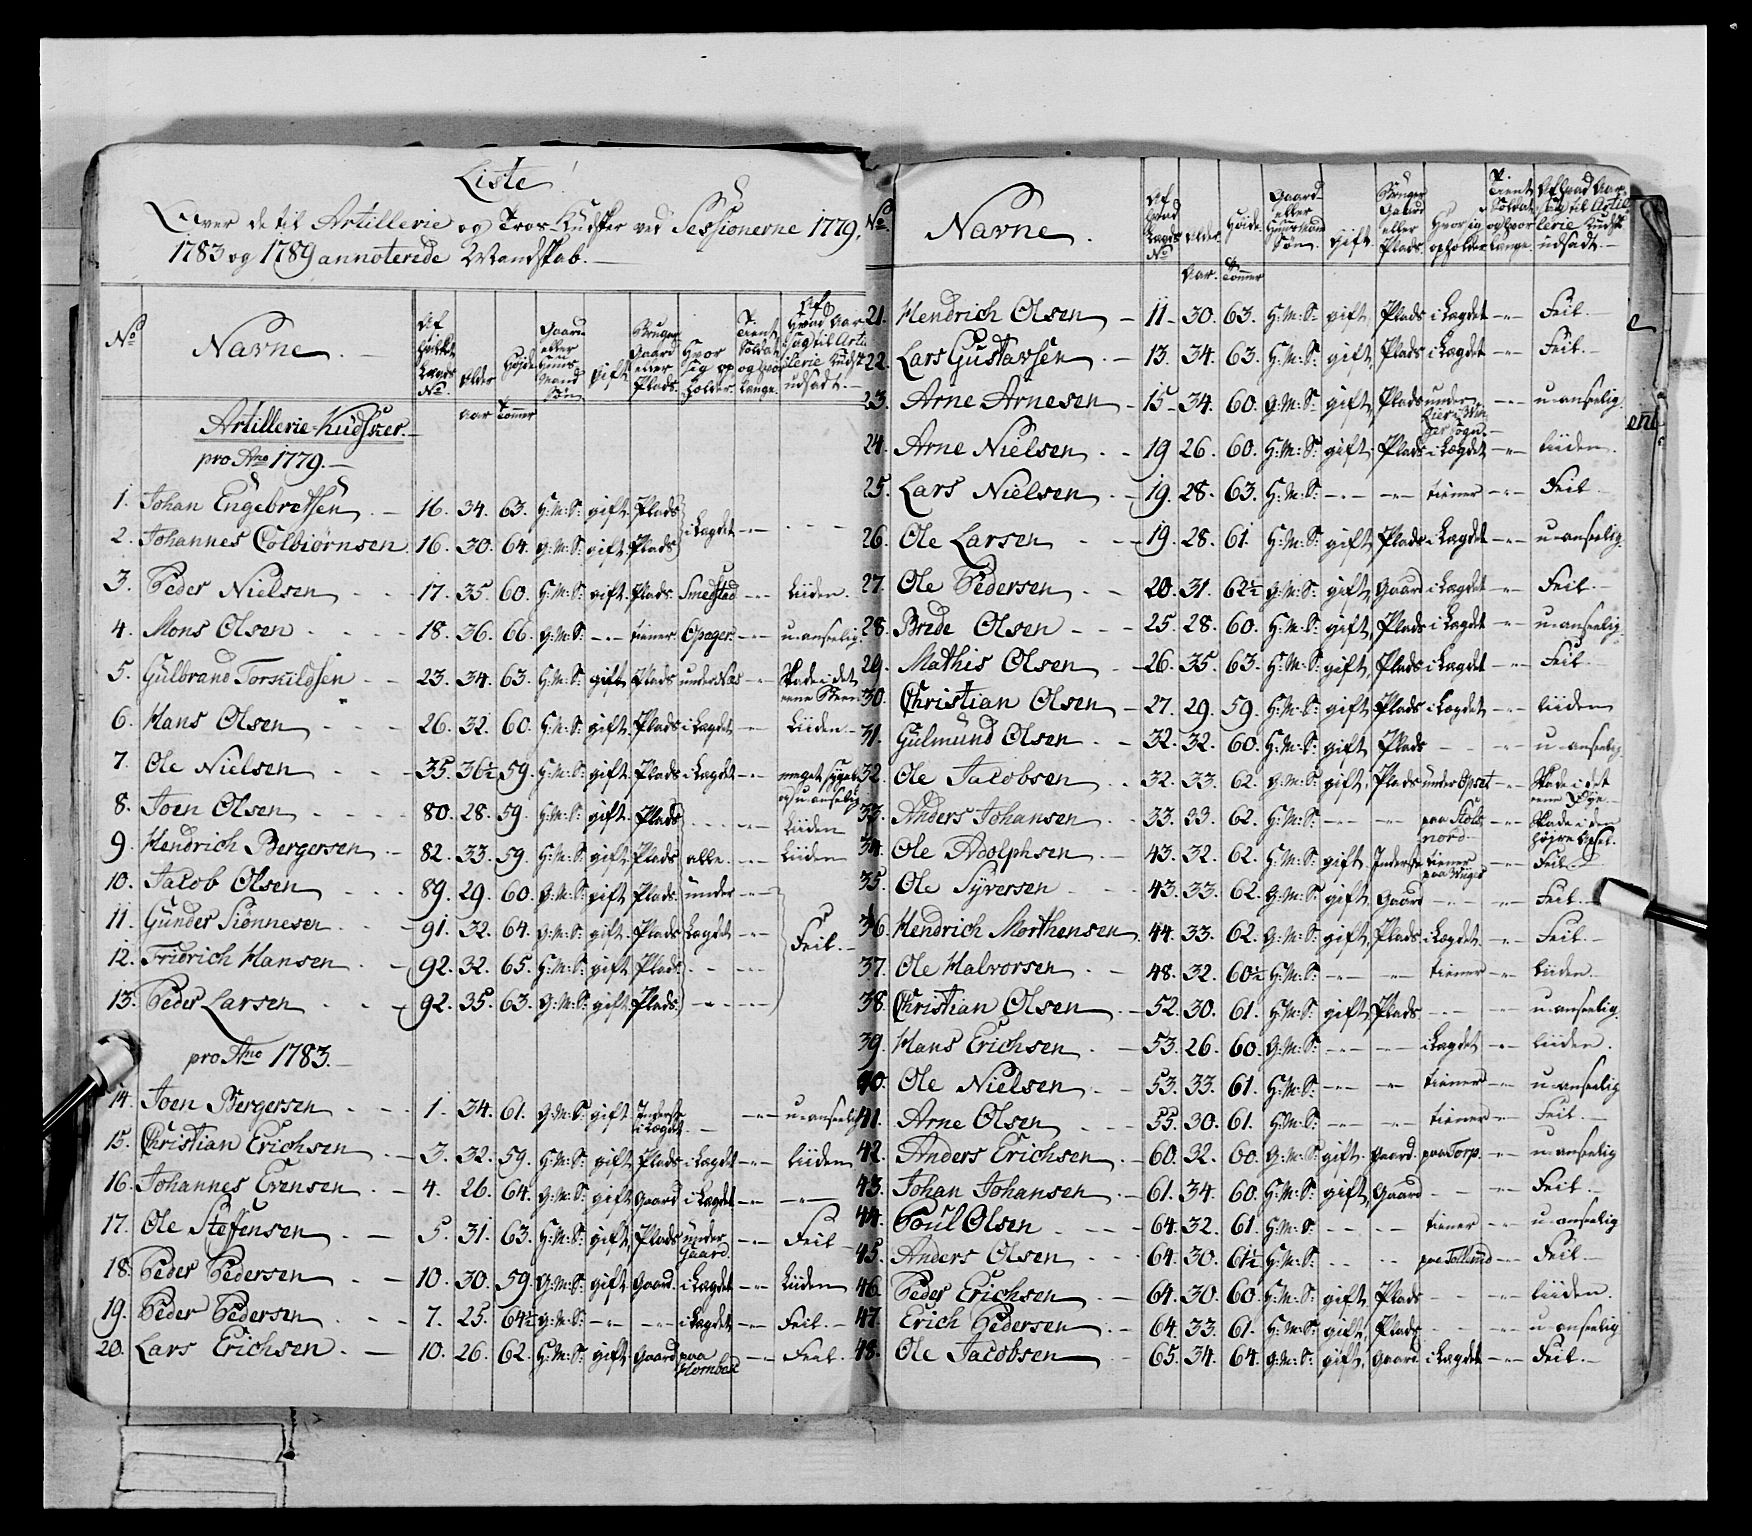 Liste
Over de til Artillerie og Tros Kudsker ved Sessionerne 1779,
1783 og 1789 annoterede Mandskab. —
No Navne. Af hvilket Lægds No. Alder Høyde Gaard eller Huus Mand Søn gift Bruger Gaard eller Plads. Hvor sig opholder. Tient Soldat og hvor længe. Af hvad Aarsag til Artillerie Kudsk udsadt. —
Aar Tommer
Artillerie-Kudsker. —
pro Ano 1779. —
1. Johan Engebretsen — 16. 34. 63. H: M: S: gift Plads
2. Johannes Colbiørnsen 16. 30. 64. G: M: S: gift Plads i Lægdet — —
3. Peder Nielsen 17. 35. 60. H: M: S: gift Plads Smedstad — Liiden.
4. Mons Olsen 18. 36. 66. G: M: S: — tiener Opager — u-anseelig.
5. Gulbrand Torkildsen 23. 34. 63. H: M: S: gift Plads under Næs — Skade i det eene Been
6. Hans Olsen 26. 32. 60. H: M: S: gift Plads i Lægdet — Liiden —
7. Ole Nielsen 35. 36½ 59. H: M: S: gift Plads i Lægdet — meget sygel: og u-anselig
8. Joen Olsen 80. 28. 59. H: M: S: gift Plads — Liiden
9. Hendrich Bergersen 82. 33. 59. H: M: S: gift Plads alle — Liiden
10. Jacob Olsen 89. 29. 60. G: M: S: gift Plads under —
11. Gunder Siønnesen 91. 32. 64. G: M: S: gift Plads Lægdet — Feil. —
12. Fridrich Hansen 92. 32. 65. H: M: S: gift Plads —
13. Peder Larsen 92. 35. 63. G: M: S: gift Plads. —
pro Ano 1783. —
14. Joen Bergersen 1. 34. 61. G: M: S: gift Inderst i Lægdet — u-anseelig
15. Christian Erichsen 3. 32. 59. H: M: S: gift Plads i Lægdet — Liiden
16. Johannes Evensen 4. 26. 64. G: M: S: gift Gaard i Lægdet — —
17. Ole Steffensen 5. 31. 63. H: M: S: gift Plads under Gaard — Feil —
18. Peder Pedersen 10. 30. 59. G: M: S: gift Gaard i Lægdet — Liiden
19. Peder Pedersen 7. 25. 64½ G: M: S: — — i Lægdet — Feil. —
20. Lars Erichsen 10. 26. 62. H: M: S: gift Gaard paa — Feil. —
No. Navne. Af hvad Lægds No Alder Høide Gaard eller Huusmand Søn gift Bruger Gaard eller Plads. Hvor sig opholder Tient Soldat og hvor længe. Af hvad Aarsag til Artillerie Kudsk udsadt. —
Aar. Tommer
21. Hendrich Olsen — 11. 30. 63. H: M: S: gift Plads i Lægdet — Feil. —
22. Lars Gustavsen — 13. 34. 63. H: M: S: gift Plads i Lægdet — Feil. —
23. Arne Arnesen — 15. 34. 60. G: M: S: gift Plads under — u-anseelig.
24. Arne Nielsen — 19 26. 60. H: M: S: gift Plads i Lægdet — liiden.
25. Lars Nielsen — 19. 28. 63. H: M: S: — — tiener — Feil —
26. Ole Larsen — 19. 28. 61. H: M: S: gift Plads i Lægdet — u-anseelig.
27. Ole Pedersen — 20. 31. 62½ G: M: S: gift Gaard i Lægdet — Feil —
28. Brede Olsen — 25. 28. 60. H: M: S: gift Plads i Lægdet — u-anseelig.
29. Mathis Olsen — 26. 35. 63. H: M: S: gift Plads i Lægdet — Feil. —
30. Christian Olsen — 27. 29. 59. H: M: S: gift Plads i Lægdet — liiden
31. Gulmund Olsen — 32. 32. 60. H: M: S: gift Plads — — u-anseelig.
32. Ole Jacobsen — 32. 33. 62. G: M: S: gift Plads under Opset — Skade i det eene Øye —
33. Anders Johansen — 33. 33. 62. H: M: S: — — paa nord — Skade i den høyre Axel.
34. Ole Adolphsen — 43. 32. 62. H: M: S: gift Inderste tiener paa — Feil —
35. Ole Syversen — 43. 33. 62. G: M: S: gift Gaard — — Feil —
36. Hendrich Morthensen. 44. 33. 62. G: M: S: gift Plads i Lægdet — Feil. —
37. Ole Halvorsen — 48. 32. 60½ H: M: S: — — tiener — liiden. —
38. Christian Olsen — 52. 30. 61. H: M: S: gift Plads — — u-anseelig.
39. Hans Erichsen — 53. 26. 60. G: M: S: — — i Lægdet — liiden.
40. Ole Nielsen — 53. 33. 61. H: M: S: — — tiener — u-anseelig
41. Arne Olsen — 55. 30. 61. H: M: S: — — tiener — Feil. —
42. Anders Erichsen — 60. 32. 60. G: M: S: gift Gaard. paa Torp. — u-anseelig
43. Johan Johansen — 61. 34. 60. H: M: S: gift Gaard — — Feil. —
44. Poul Olsen — 64. 32. 61. H: M: S: — — tiener — u-anseelig
45. Anders Olsen — 64. 30. 61½ H: M: S: — — paa — Feil. —
46. Peder Erichsen — 64. 30. 60. H: M: S: gift Plads — — liiden.
47. Erich Pedersen — 64. 33. 61. H: M: S: gift Plads — — u-anseelig
48. Ole Jacobsen — 65. 34. 64. G: M: S: gift. Gaard i Lægdet — Feil. —